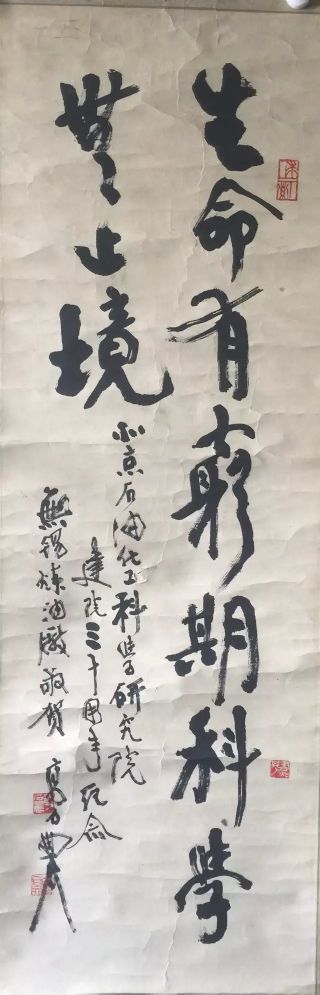 生命有窮期科學
無止境
北京石油化工科学研究院
建院三十周年纪念
無錫炼油廠敬贺